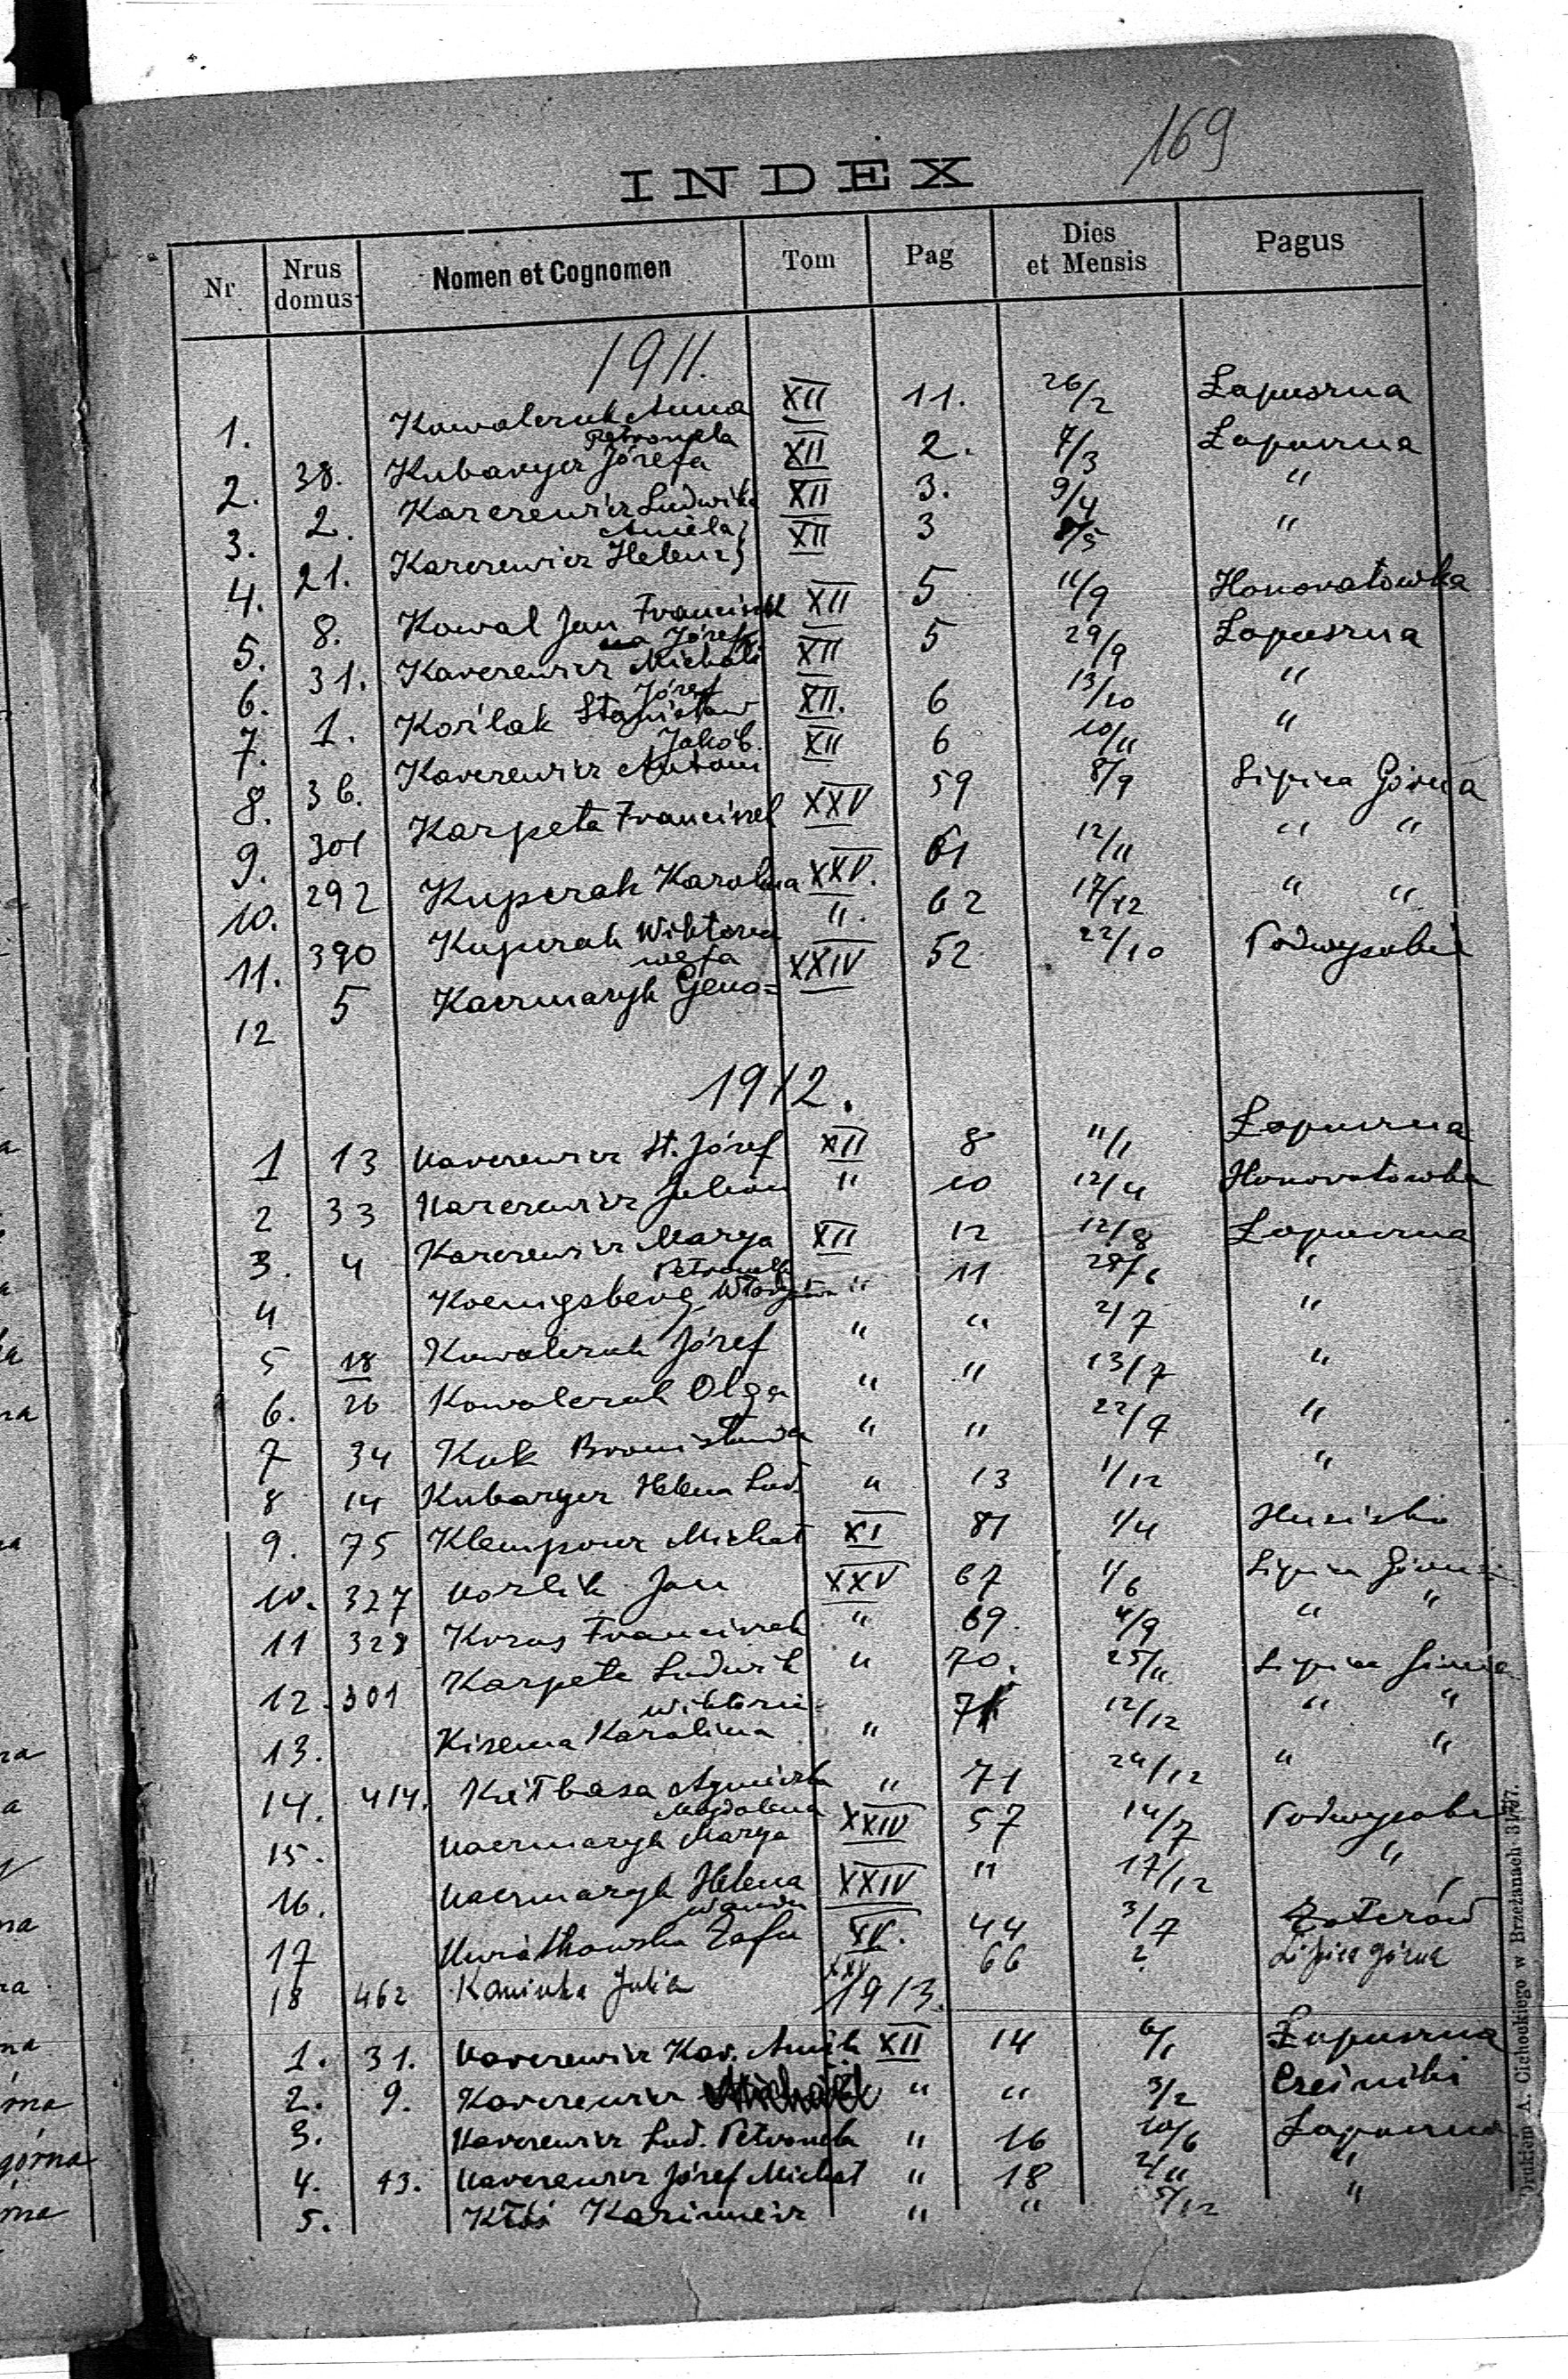 169
INDEX
Nr Nrus domus Nomen et Cognomen Tom Pag Dies et Mensis Pagus
1911.
1. Kowalczuk Anna XII 11. 26/2 Łapuszna
Petronela
2. 38. Kubarycz Józefa XII 2. 7/3 Łapuszna
3. 2. Karczewicz Ludwika XII 3. 9/4 "
Aniela
4. 21. Karczewicz Helena XII 3 /5 "
5. 8. Kowal Jan Franciszek XII 5 11/9 Honoratówka
Józef
6. 31. Karczewicz Michał XII 5 29/9 Łapuszna
Józef
7. 1. Koźlak Stanisław XII. 6 13/10 "
Jakób.
8. 36. Karczewicz Antoni XII 6 10/11 "
9. 301 Karpeta Franciszek XXV 59 8/9 Lipica Górna
10. 292 Kuperak Karolina XXV. 61 12/11 " "
11. 390 Kuperak Wiktorya ". 62 17/12 " "
wefa
12 5 Kaczmaryk Geno= XXIV 52 22/10 Podwysokie
1912.
1 13 Karczewicz St. Józef XII 8 11/1 Łapuszna
2 33 Karczewicz Julian " 10 12/4 Honoratówka
3. 4 Karczewicz Marya XII 12 12/8 Łapuszna
Petronella
4 Koenigsberg " 11 28/6 "
5 18 Kowalczuk Józef " " 2/7 "
6. 26 Kowalczuk Olga " " 13/7 "
7 34 Kuk Bronisława " " 22/9 "
8 14 Kubarycz Helena Lud. " 13 1/12 "
9. 75 Klempouz Michał XI 81 1/4 Hucisko
10. 327 Korlik Jan XXV 67 1/6 Lipica Górna
11 328 Kozus Franciszek " 69. 4/9 " "
12. 301 Karpeta Ludwik " 70. 25/11 Lipica Górna
Wiktoria
13. Kisema Karolina " 71 12/12 " "
14. 414. Kiełbasa Agnieszka " 71 24/12 " "
Magdalena
15. Kaczmaryk Marya XXIV 57 14/7 Podwysokie
16. Kaczmaryk Helena XXIV " 17/12 "
Wanda
17 Kuratkowska Zofia XV. 44 3/7
18 462 Kaminka Julia XXV 66 ? Lipica górna
1913.
1. 31. Karczewicz Kar. Aniela XII 14 6/1 Łapuszna
2. 9. Karczewicz " " 3/2 Cześniki
3. Karczewicz Lud. Petronela " 16 10/6 Łapuszna
4. 13. Karczewicz Józef Michał " 18 2/11 "
5. Kłoś Kazimierz " " 5/12 "
Drukiem A. Cichockiego w Brzeżanach